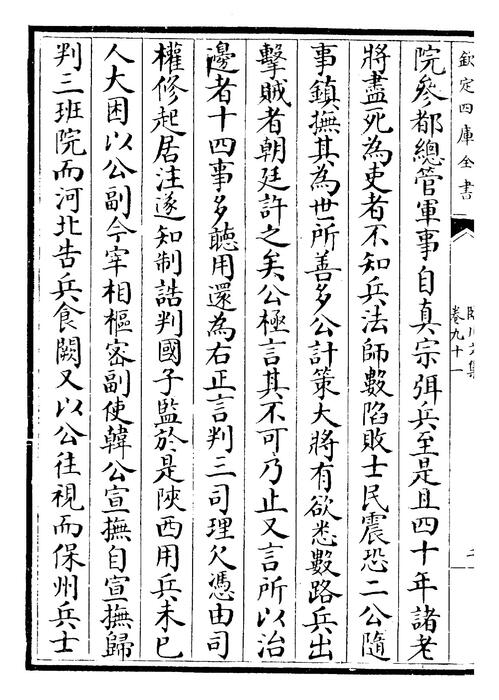 欽定四庫全書
臨川文集
卷九十一
院參都總管軍事自真宗弭兵至是且四十年諸老
將盡死為吏者不知兵法師數陷敗士民震恐二公隨
事鎮撫其為世所善多公計策大將有欲悉數路兵出
擊賊者朝廷許之矣公極言其不可乃止又言所以治
邊者十四事多聽用還為右正言判三司理欠憑由司
權修起居注遂知制誥判國子監於是陝西用兵未已
人大困以公副今宰相樞密副使韓公宣撫自宣撫歸
判三班院而河北告兵食闕又以公往視而保州兵士